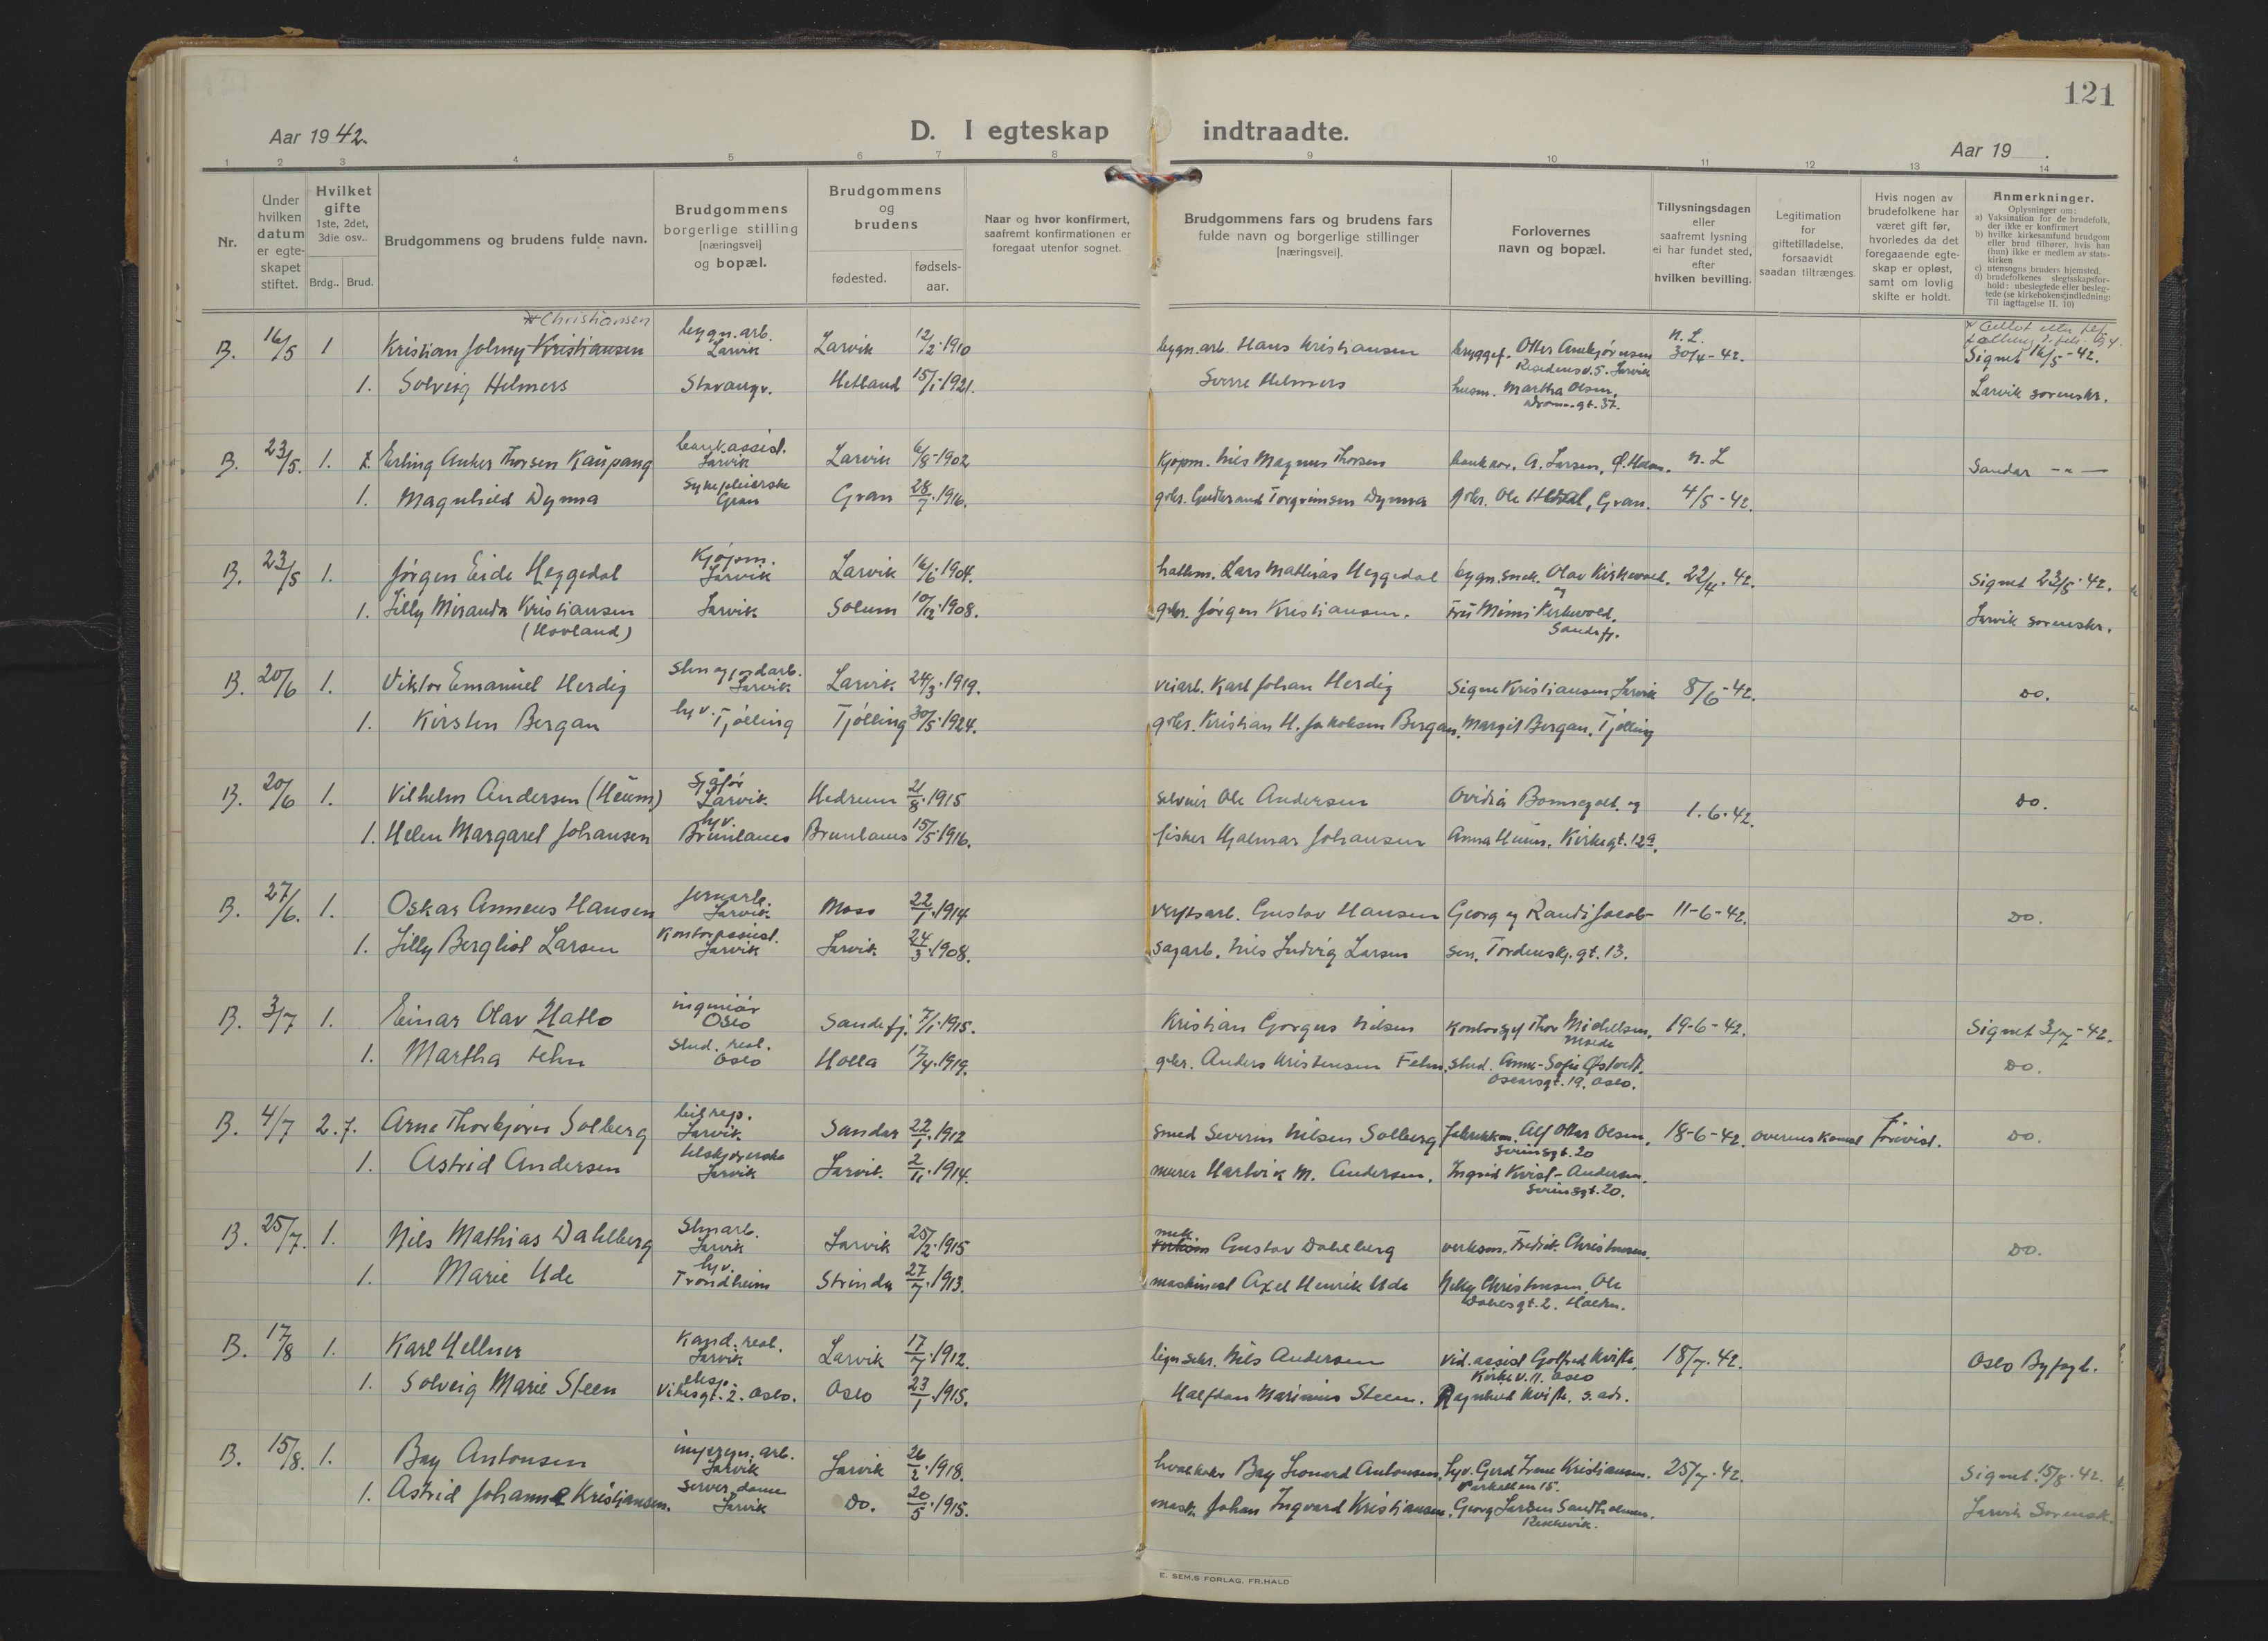 121
Aar 1942.
D. I egteskap indtraadte.
Aar 19 .
1 2 3 4 5 6 7 8 9 10 11 12 13 14
Nr.
Under hvilken datum er egte-skapet stiftet.
Hvilket gifte 1ste, 2det, 3die osv..
Brdg.. Brud.
Brudgommens og brudens fulde navn.
Brudgommens borgerlige stilling [næringsvei] og bopæl.
Brudgommens og brudens
fødested. fødsels-aar.
Naar og hvor konfirmert, saafremt konfirmationen er foregaat utenfor sognet.
Brudgommens fars og brudens fars fulde navn og borgerlige stillinger [næringsvei].
Forlovernes navn og bopæl.
Tillysningsdagen eller saafremt lysning ei har fundet sted, efter hvilken bevilling.
Legitimation for giftetilladelse, forsaavidt saadan tiltrænges.
Hvis nogen av brudefolkene har været gift før, hvorledes da det foregaaende egte-skap er opløst, samt om lovlig skifte er holdt.
Anmerkninger.
Oplysninger om:
a) Vaksination for de brudefolk, der ikke er konfirmert
b) hvilke kirkesamfund brudgom eller brud tilhører, hvis han (hun) ikke er medlem av stats-kirken
c) utensogns bruders hjemsted.
d) brudefolkenes slegtsskapsfor-hold: ubeslegtede eller besleg-tede (se kirkebokens indledning: Til iagttagelse II. 10)
* Christiansen
B. 16/5 1 Kristian Johny Kristiansen bygn.arb. Larvik Larvik 12/2·1910 bygn.arb. Hans Kristiansen bryggef. Otter Ambjørnsen Residensv. 5. Larvik n. L. 30/4-42. Signet 16/5-42.
1. Solveig Helmers Stavanger. Hetland 15/1·1921. Sverre Helmers husm. Martha Olsen, gt. 37. Larvik sorenskr.
B. 23/5. 1. Erling Anker Thorsen Kaupang bankassist. Larvik Larvik 6/8-1902 Kjøpm. Nils Magnus Thorsen A. Larsen, n. L Sandar -"-
1. Magnhild Dynna Sykepleierske Gran Gran 28/7·1916. gbr. Gudbrand Torgrimsen Dynna gbr. Ole Hval, Gran. 4/5-42.
B. 23/5 1. Jørgen Eide Heggedal Kjøpm. Larvik Larvik 16/6·1904. Lars Mathias Heggedal bygn.snek. Olav Kirkevold og 22/4. 42. Signet 23/5·42.
1. Lilly Miranda Kristiansen (Hovland) Larvik Solum 10/12·1908. gbr. Jørgen Kristiansen. Fru Mimi Kirkevold, Sandefj. Larvik sorenskr.
B. 20/6 1. Viktor Emanuel Herdig sten og jordarb. Larvik Larvik 24/3·1919. veiarb. Karl Johan Herdig Signe Kristiansen Larvik 8/6-42. Do.
1. Kirsten Bergan hv. Tjølling Tjølling 30/5·1924. gbr. Kristian H. Jakobsen Bergan. Margit Bergan, Tjølling
B. 20/6 1. Vilhelm Andersen (Heum) Sjåfør Larvik Hedrum 21/8·1915 Ole Andersen Ovidia og 1·6·42. Do.
1. Helen Margaret Johansen hv. Brunlanes Brunlanes 15/5·1916. fisker Hjalmar Johansen Anna Heum. Kirkegt. 12a.
B. 27/6. 1. Oskar Anneus Hansen jernarb. Larvik Moss 22/1·1914 verftsarb. Gustav Hansen Georg og Randi Jacob- 11-6-42. Do.
1. Lilly Bergliot Larsen Kontorassist. Larvik Larvik 24/3·1908. Sagarb. Nils Ludvig Larsen sen, Tordenskj. gt. 13.
B. 3/7 1. Einar Olav Hatlo ingeniør Oslo Sandefj. 7/1·1915. Kristian Gorgus Nilsen Kontorsjef Thor Michelsen, 19-6-42. Signet 3/7-42.
1. Martha Fehn Stud. real. Oslo Holla 17/4·1919. gbr. Anders Kristensen Fehn. stud. Anne-Sofie Østvedt. Oscarsgt. 19, Oslo. Do.
B. 4/7 2. f. Arne Thorbjørn Solberg bilrep. Larvik Sandar 22/1·1912 Smed Severin Nilsen Solberg Alf Ottar Olsen, gt. 20 18-6-42. Do.
1. Astrid Andersen tilskjærerske Larvik Larvik. 2/11·1914. murer Hartvik M. Andersen. Ingrid Kvist-Andersen. gt. 20.
B. 25/7. 1. Nils Mathias Dahlberg Stenarb. Larvik Larvik 25/2·1915 mek. Gustav Dahlberg verksm. Fredrik Christensen. Do.
1. Marie Ude hv. Trondheim Strinda 27/7·1913. maskinist Axel Henrik Ude Nelly Christensen, Ole gt. 2. Halden.
B. 17/8 1. Karl Hellner Kand. real. Larvik Larvik 17/7·1912. lign.sekr. Nils Andersen vid. assist Golfred Kvifte, Kirkev. 11. Oslo 18/7·42. Oslo Byfogd.
1. Solveig Marie Steen eksp. Vibesgt. 2. Oslo. Oslo 23/1·1915. Halfdan Marinius Steen. Ragnhild Kvifte. s. adr.
B. 15/8. 1. Bay Antonsen impregn. arb. Larvik Larvik 26/2·1918. hvalkoker Bay Leonard Antonsen, hv. Gerd Irene Kristiansen. Parkalleen 15. 25/7·42. Signet. 15/8·42.
1. Astrid Johanne Kristiansen. Server. dame Larvik Do. 20/5·1915. mask. Johan Ingvard Kristiansen. Georg Larsen Sandtholmen. Rekkevik. Larvik Sorensk.
E. SEM,S FORLAG, FR.HALD